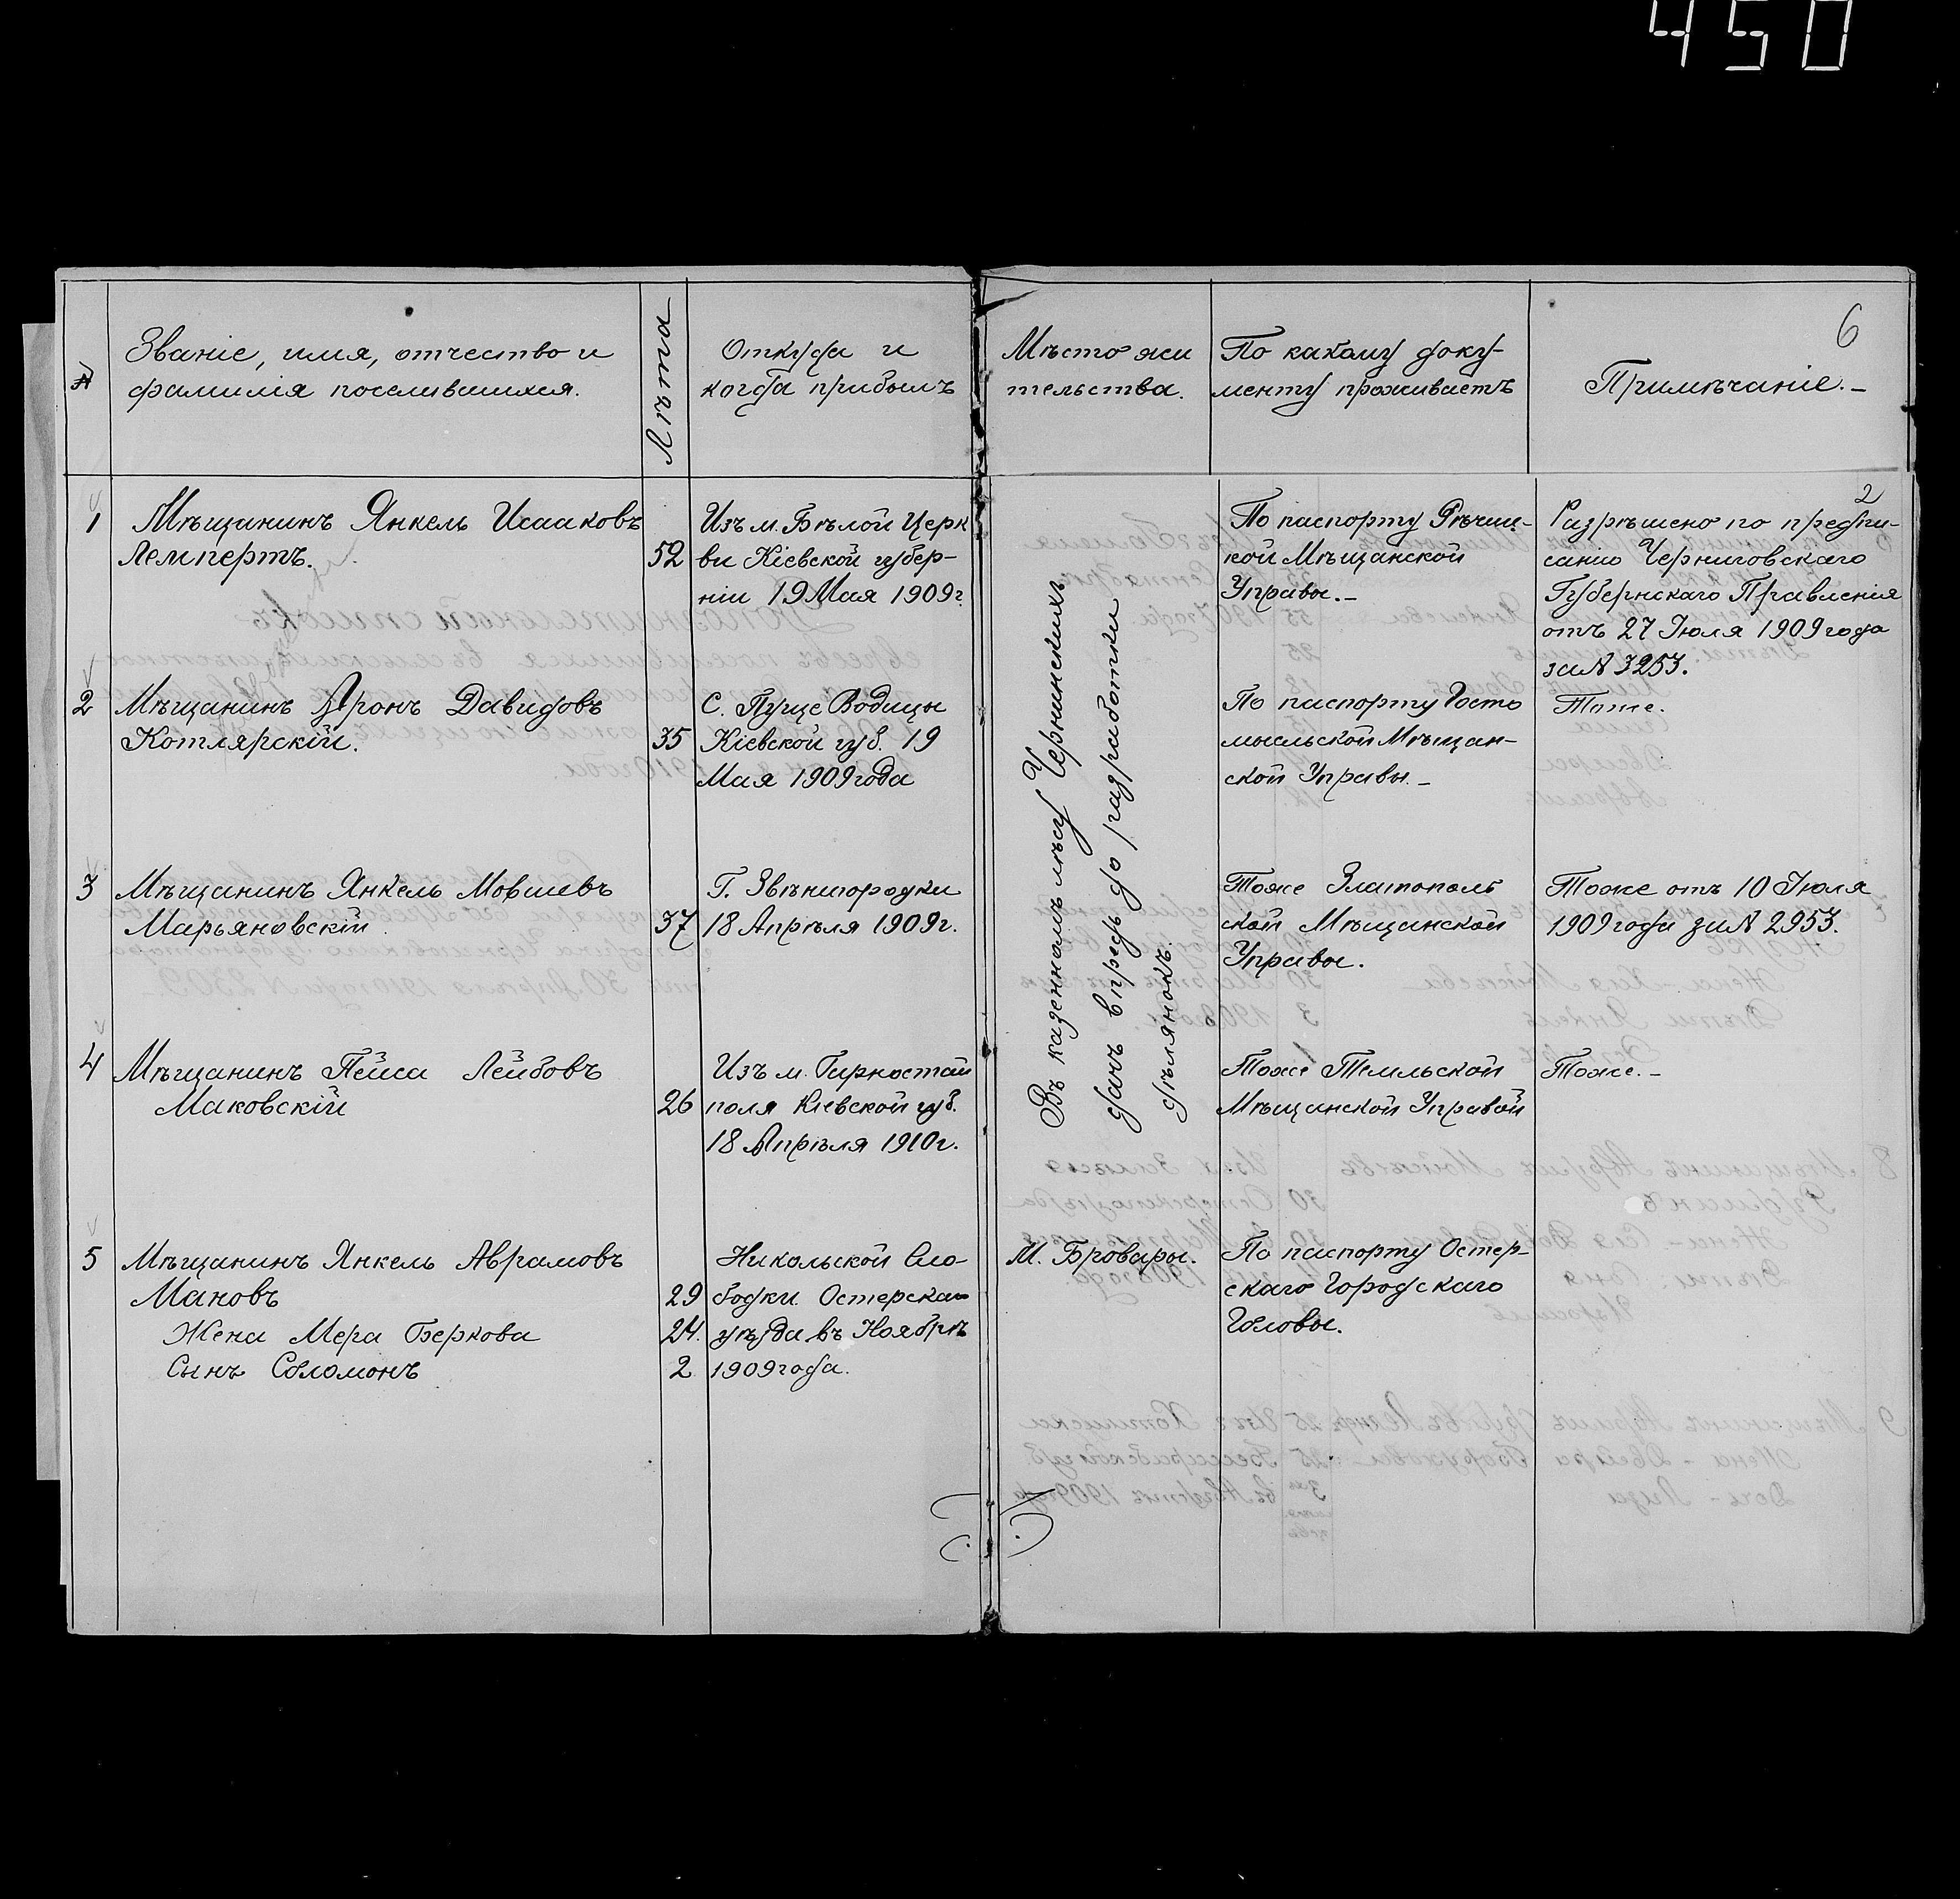 450
6
№
Званіе, имя, отчество и
фамилія поселившихся.
Лѣта
Откуда и
когда прибылъ
Мѣсто жи
тельства.
По какому доку-
менту проживаетъ
Примѣчаніе.-
2
1
Мѣщанинъ Янкель Исааковъ
Лемпертъ.
52
Изъ м. Бѣлой Церк
ви Кіевской губер-
ніи 19 Мая 1909г.
Въ казенномъ лѣсу Чернинскихъ
дачъ впредь до разработки
дѣлянокъ.
По паспорту Рѣчиц-
кой Мѣщанской
Управы.-
Разрѣшено по предпи-
санію Черниговскаго
Губернскаго Правленія
отъ 27 Іюля 1909 года
за № 3253.
2
Мѣщанинъ Аронъ Давидовъ
Котлярскій.
35
С. Пуще Водицы
Кіевской губ. 19
Мая 1909 года
По паспорту Госто
мысльской Мѣщан-
ской Управы.-
Тоже.
3
Мѣщанинъ Янкель Мовшевъ
Марьяновскій.
37
Г. Звѣнигородки
18 Апрѣля 1909г.
Тоже Златополь
ской Мѣщанской
Управы.
Тоже отъ 10 Іюля
1909 года за № 2953.
4
Мѣщанинъ Пейса Лейбовъ
Маковскій
26
Изъ м. Горностай
поля Кіевской губ.
18 Апрѣля 1910г.
Тоже
Мѣщанской Управой
Тоже.-
5
Мѣщанинъ Янкель Аврамовъ
Мановъ
29
Жена Мера Беркова
24.
Сынъ Соломонъ
2
Никольской Сло-
бодки Остерска
уѣзда въ Ноябрѣ
1909 года.
М. Бровары.
По паспорту Остер-
скаго Городскаго
Головы.